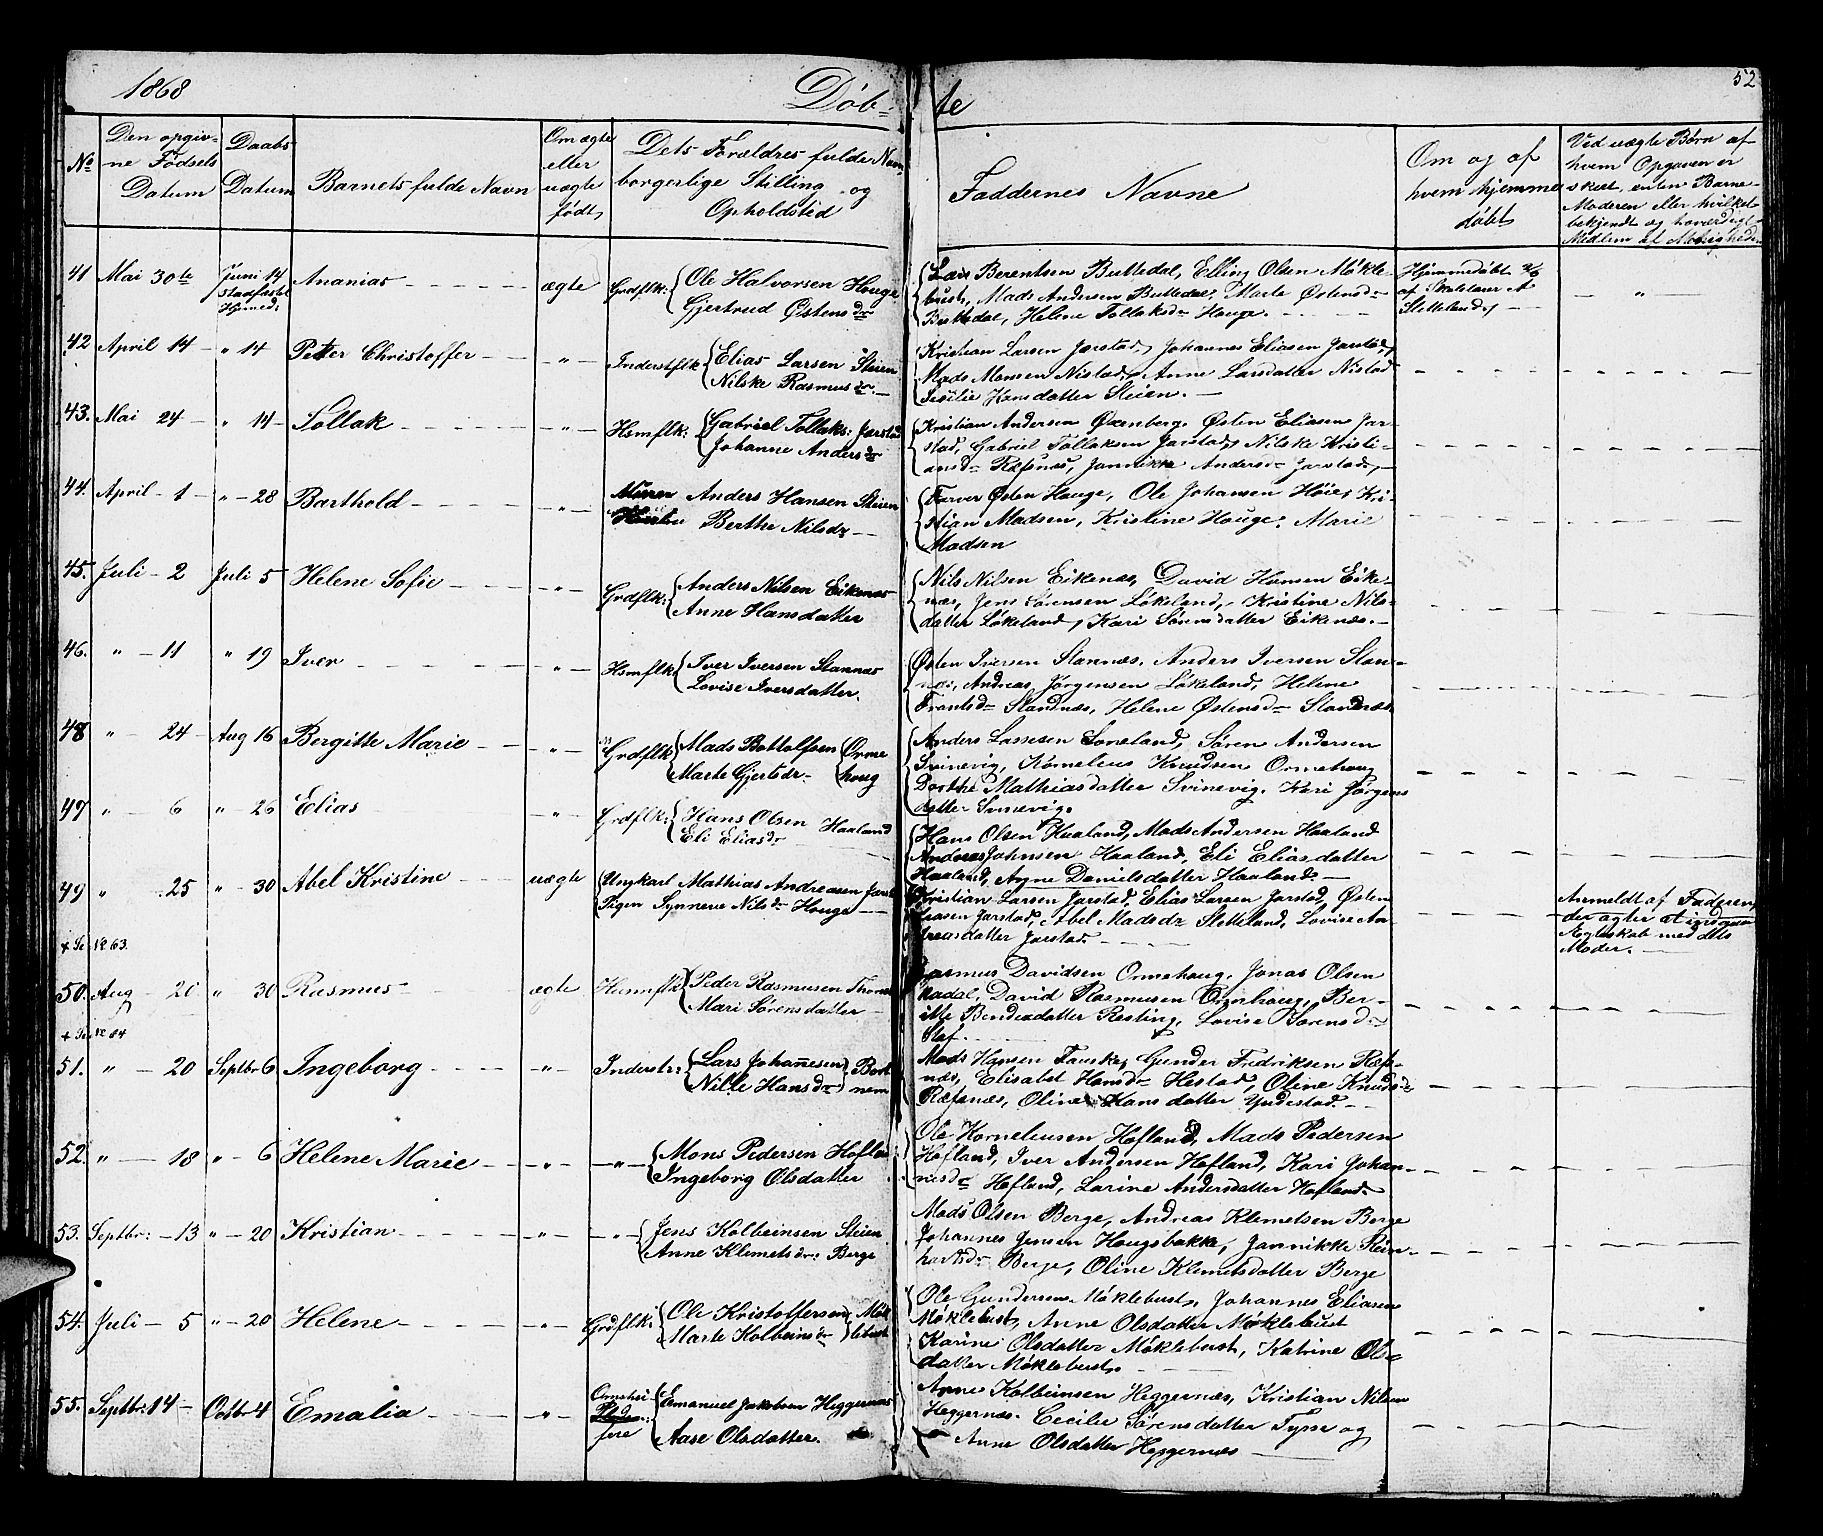 1868
Døb-
te
52
No
Den opgiv-
ne Fødsels
Datum
Daabs
Datum
Barnets fulde Navn
Om ægte
eller
uægte
født
Dets Forældres fulde Navn,
borgerlige Stilling og
Opholdsted
Faddernes Navne
Om og af
hvem hjemme
døbt
Ved uægte Børn af
hvem Opgaven er
skeet, enten Barne-
Moderen eller hvilket
bekjendt og troværdigt
Medlem af Menigheden
41 Mai 30te Juni 14 Ananias ægte Grdflk: Ole Halvorsen Houge
stadfæstet
Hjmed:
Gjertrud Østensdr
Lars Berentsen Buttedal, Elling Olsen Møkle-
bust, Mads Andersen Buttedal, Marte Østensdr
Buttedal, Helene Tollaksdr Houge.
Hjemmedøbt
af Skolelærer A
Sletteland
42 April 14 " 14 Petter Christoffer " Inderstflk Elias Larsen Steien
Nilske Rasmusdr
Kristian Larsen Jarstad, Johannes Eliasen Jarstad,
Mads Monsen Nistad, Anne Larsdatter Nistad
Sesilie Hansdatter Steien.
43. Mai 24 " 14 Tollak " Hsmflk: Gabriel Tollaks: Jarstad
Johanne Andersdr
Kristian Andersen Øxenberg, Østen Eliasen Jar-
stad, Gabriel Tollaksen Jarstad, Nilske Kristi-
ansdr Ræfsnæs, Jannikke Andersdr Jarstad,
44. April 1 " 28 Barthold " Anders Hansen Steien
Berthe Nilsdr
Farver Østen Houge, Ole Johansen Høie, Kri-
stian Madsen, Kristine Houge, Marie
Madsen
45. Juli 2 Juli 5 Helene Sofie " Grdflk: Anders Nilsen Eikenæs
Anne Hansdatter
Nils Nilsen Eikenæs, David Hansen Eike-
næs, Jens Sørensen Løkeland, Kristine Nils-
datter Løkeland, Kari Sørensdatter Eikenæs.
46. " 11 " 19 Iver " Hsmflk Iver Iversen Stannæs
Lovise Iversdatter.
Østen Iversen Stannæs, Anders Iversen Stan-
næs, Andreas Jørgensen Løkeland, Helene
Frantsdr Standnæs, Helene Østensdr Standnæs
48 " 24 Aug 16 Bergitte Marie " Grdflk Mads Bottolfsen Orme
Marte Gjertsdr houg
Anders Lassesen Soneland, Søren Andersen
Svinevig, Kornelius Knudsen Ormehoug
Dorthe Mathiasdatter Svinevig, Kari Jørgens
datter Svinevig.
47 " 6 " 26 Elias " Grdflk: Hans Olsen Haaland
Eli Eliasdr
Hans Olsen Haaland, Mads Andersen Haaland
Andreas Johnsen Haaland, Eli Eliasdatter
Haaland, Agne Danielsdatter Haaland.
49 " 25 " 30 Abel Kristine uægte Ungkarl Mathias Andreasen Jarsta
Pigen Synneve Nilsdr Houge
Kristian Larsen Jarstad, Elias Larsen Jarstad, Østen
Eliasen Jarstad, Abel Madsdr Sletteland, Lovise An-
dreasdatter Jarstad.
Anmeldt af Faderen,
der agter at indgaa
Ægteskab med dets
Moder.
+ Se No 63.
50. Aug 20 " 30 Rasmus ægte Husmflk Peder Rasmusen
Mari Sørensdatter
Rasmus Davidsen Ormehoug, Jonas Olsen
David Rasmusen Ormehoug, Ber-
itte Bendixdatter Resting, Lovise Sørensd-
+ Se No 84
51. " 20 Septbr 6 Ingeborg " Inderstr: Lars Johañesen Bort
Nille Hansdr nem
Mads Hansen Fauske, Gunder Fredriksen Ræf-
næs, Elisabet Hansdr Hestad, Oline Knudsdr
Ræfsnæs, Oline Hansdatter Yndestad.
52. " 18 " 6 Helene Marie " " Mons Pedersen Hofland
Ingeborg Olsdatter
Ole Korneliussen Hofland, Mads Pedersen
Hofland, Iver Andersen Hofland, Kari Johan-
nesdr Hofland, Larine Andersdatter Hofland.
53. Septbr: 13 " 20 Kristian " " Jens Kolbeinsen Steien
Anne Klemetsdr: Berge
Mads Olsen Berge, Andreas Klemetsen Berge
Johannes Jensen Hougsbakke, Jannikke Rein-
hartsdr Berge, Oline Klemetsdatter Berge
54. Juli 5 " 20 Helene " Grdflk: Ole Kristoffersen Møk
Marte Kolbeinsdr lebust
Ole Gundersen Møklebust, Johannes Eliasen
Møklebust, Anne Olsdatter Møklebust
Karine Olsdatter Møklebust, Katrine Ols-
datter Møklebust.
55. Septbr: 14 Octbr 4 Emalia " Emanuel Jakobsen Heggernæs
Aase Olsdatter.
Anne Kolbeinsen Heggernæs, Kristian Nilsen
Heggernæs. Cecilie Sørensdatter Tysse og
Anne Olsdatter Heggernæs